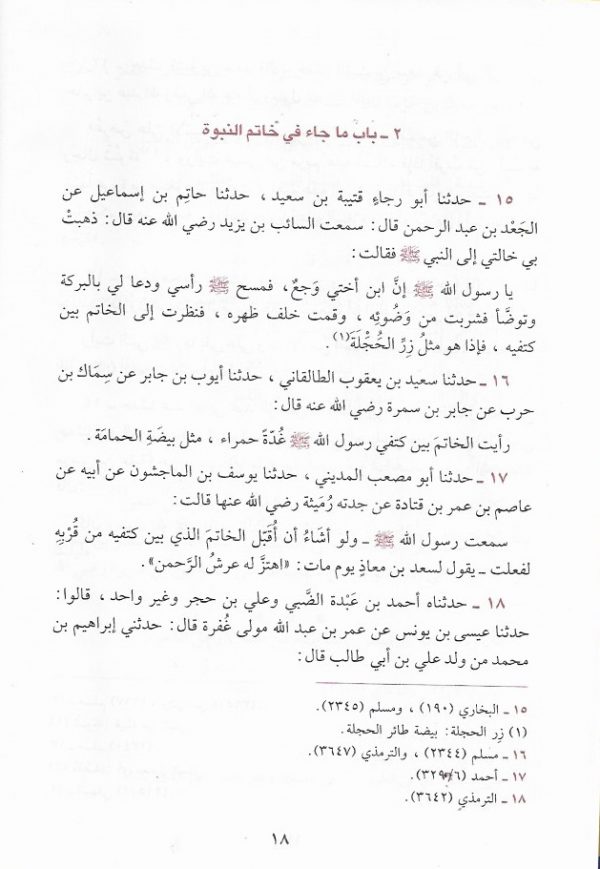 ٢ ـ باب ما جاء في خاتم النبوة
١٥ ـ حدثنا أبو رجاءٍ قتيبة بن سعيد ، حدثنا حاتِم بن إسماعيل عن
الجَعْد بن عبد الرحمن قال: سمعت السائب بن يزيد رضي الله عنه قال: ذهبتْ
بي خالتي إلى النبي ﷺ فقالت:
يا رسول الله ﷺ إنَّ ابن أختي وَجعٌ، فمسح ﷺ رأسي ودعا لي بالبركة
وتوضَّأ فشربت من وَضُوئِه ، وقمت خلف ظهره ، فنظرت إلى الخاتم بين
كتفيه ، فإذا هو مثلُ زِرِّ الحُجْلَة(١).
١٦ ـ حدثنا سعيد بن يعقوب الطالقاني ، حدثنا أيوب بن جابر عن سِمَاك بن
حرب عن جابر بن سمرة رضي الله عنه قال:
رأيت الخاتمَ بين كتفي رسول الله ﷺ غُدَّةً حمراء ، مثل بيضَةِ الحمامَة.
١٧ ـ حدثنا أبو مصعب المديني ، حدثنا يوسف بن الماجشون عن أبيه عن
عاصم بن عمر بن قتادة عن جدته رُمَيثة رضي الله عنها قالت:
سمعت رسول الله ﷺ ـ ولو أشَاءُ أن أُقَبِّل الخاتمَ الذي بين كتفيه من قُرْبِهِ
لفعلت ـ يقول لسعد بن معاذٍ يوم مات: «اهتزَّ له عرشُ الرَّحمن».
١٨ ـ حدثناه أحمد بن عَبْدة الضَّبي وعلي بن حجر وغير واحد ، قالوا:
حدثنا عيسى بن يونس عن عمر بن عبد الله مولى غُفرة قال: حدثني إبراهيم بن
محمد من ولد علي بن أبي طالب قال:
١٥ ـ البخاري (١٩٠) ، ومسلم (٢٣٤٥).
(١) زِر الحجلة: بيضة طائر الحجلة.
١٦ ـ مسلم (٢٣٤٤) ، والترمذي (٣٦٤٧).
١٧ ـ أحمد (٣٢٩/٦).
١٨ ـ الترمذي (٣٦٤٢).
١٨